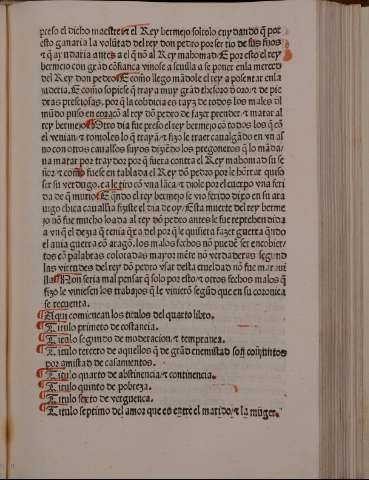 preso el dicho maestre ⁊ el Rey bermejo soltolo cuydando q̃ por
esto ganaria la volũtad del rey don pedro por ser tio de sus fijos
⁊ q̃ ayudaria antes a el q̃ nõ al Rey mahomad ⁊ E por esto el rey
bermejo con grãd cõfiança vinose a seuilla a se poner enla merced
del Rey don pedro E como llego mãdole el rey a posentar enla
juderia. E como sopiese q̃ traya muy grãd thesoro d̃ oro ⁊ de pie
dras presciosas. por q̃ la cobdicia es rayz de todos los males di
mũdo puso en coraçõ al rey dõ pedro de fazer prender ⁊ matar al
rey bermejo Otro dia fue preso el rey bermejo cõ todos los q̃ cõ
el venian ⁊ tomoles lo q̃ trayã ⁊ fizo le traer caualgãdo en vn as
no con otros caualłos suyos diziẽdo los pregoneros q̃ lo mãda
ua matar por traydor por q̃ fuera contra el Rey mahomad su se
ñor ⁊ como fuese en tablada el Rey dõ pedro por le hõrrar quiso
ser su verdugo. ca le tiro cõ vna lãça ⁊ diole por el cuerpo vna feri
da de q̃ murio E q̃ndo el rey bermejo se vio ferido dixo en su ara
uigo chica caualłia fiziste el dia de oy. Esta muerte del rey berme
jo nõ fue mucho loada al rey dõ pedro antes le fue reprehendida
a vn q̃ el dezia q̃ tenia q̃xa del por q̃ le quisiera fazer guerra q̃ndo
el auia guerra cõ aragõ. los malos fechos nõ puedẽ ser encobier/
tos cõ palabras coloradas mayor mẽte nõ verdaderas segund
las virtudes del rey dõ pedro vsar desta crueldad nõ fue maraui
lla Non seria mal pensar q̃ solo por esto ⁊ otros fechos malos q̃
fizo le viniesen los trabajos q̃ le vinierõ segũd que en su coronica
se recuenta.
Aqui comiençan los titulos del quarto libro.
Titulo primero de costancia.
Titulo segundo de moderacion ⁊ temprança.
Titulo tercero de aquellos q̃ de grãd enemistad son cõjuntos
por amistad de casamientos.
Titulo quarto de abstinencia ⁊ continencia.
Titulo quinto de pobreza.
Titulo sexto de verguença.
Titulo septimo del amor que es entre el marido ⁊ la muger.